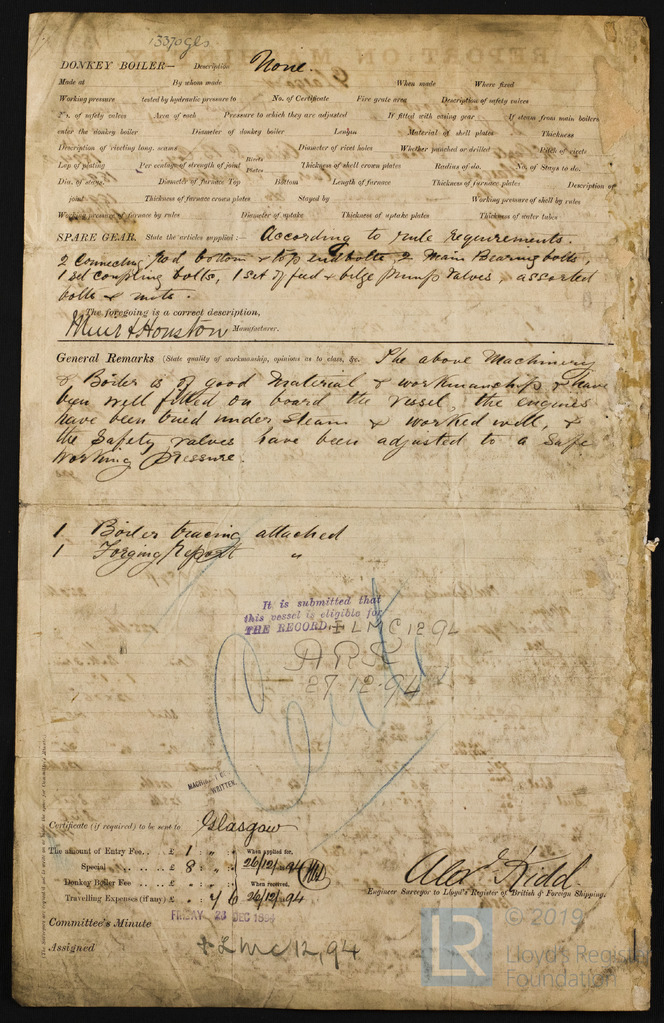 13370 gls
DONKEY BOILER— Description None.
Made at By whom made When made Where fixed
Working pressure tested by hydraulic pressure to No. of Certificate Fire grate area Description of safety valves
No. of safety valves Area of each Pressure to which they are adjusted If fitted with easing gear If steam from main boilers
enter the donkey boiler Diameter of donkey boiler Length Material of shell plates Thickness
Description of riveting long. seams Diameter of rivet holes Whether punched or drilled Pitch of rivets
Lap of plating Per centage of strength of joint Rivets Plates Thickness of shell crown plates Radius of do. No. of Stays to do.
Dia. of stays. Diameter of furnace Top Bottom Length of furnace Thickness of furnace plates Description of
joint Thickness of furnace crown plates Stayed by Working pressure of shell by rules
Working pressure of furnace by rules Diameter of uptake Thickness of uptake plates Thickness of water tubes
SPARE GEAR. State the articles supplied:— According to rule requirements.
2 Connecting rod bottom & top end bolts, 2 Main Bearing bolts,
1 set coupling bolts, 1 set of feed & bilge pump valves, assorted
bolts & nuts.
The foregoing is a correct description,
Muir & Houston Manufacturer.
General Remarks (State quality of workmanship, opinions as to class, &c. The above Machinery
& Boiler is of good material & workmanship & have
been well fitted on board the vessel, the engines
have been tried under steam & worked well, &
the Safety valves have been adjusted to a safe
working pressure.
1 Boiler tracing attached
1 Forging Report "
It is submitted that
this vessel is eligible for
THE RECORD. + LMC 12 94
27.12.94
WRITTEN.
Certificate (if required) to be sent to Glasgow
The amount of Entry Fee . . £ 1 : " : " When applied for,
Special . . . . £ 8 : " : " 26/12/94
Donkey Boiler Fee . . . £ : : When received,
Travelling Expenses (if any) £ : 4 : 6 26/12/94
Alexr Kidd
Engineer Surveyor to Lloyd's Register of British & Foreign Shipping.
FRIDAY 28 DEC 1894
Committee's Minute
Assigned + LMC 12,94
LR © 2019
Lloyd's Register
Foundation